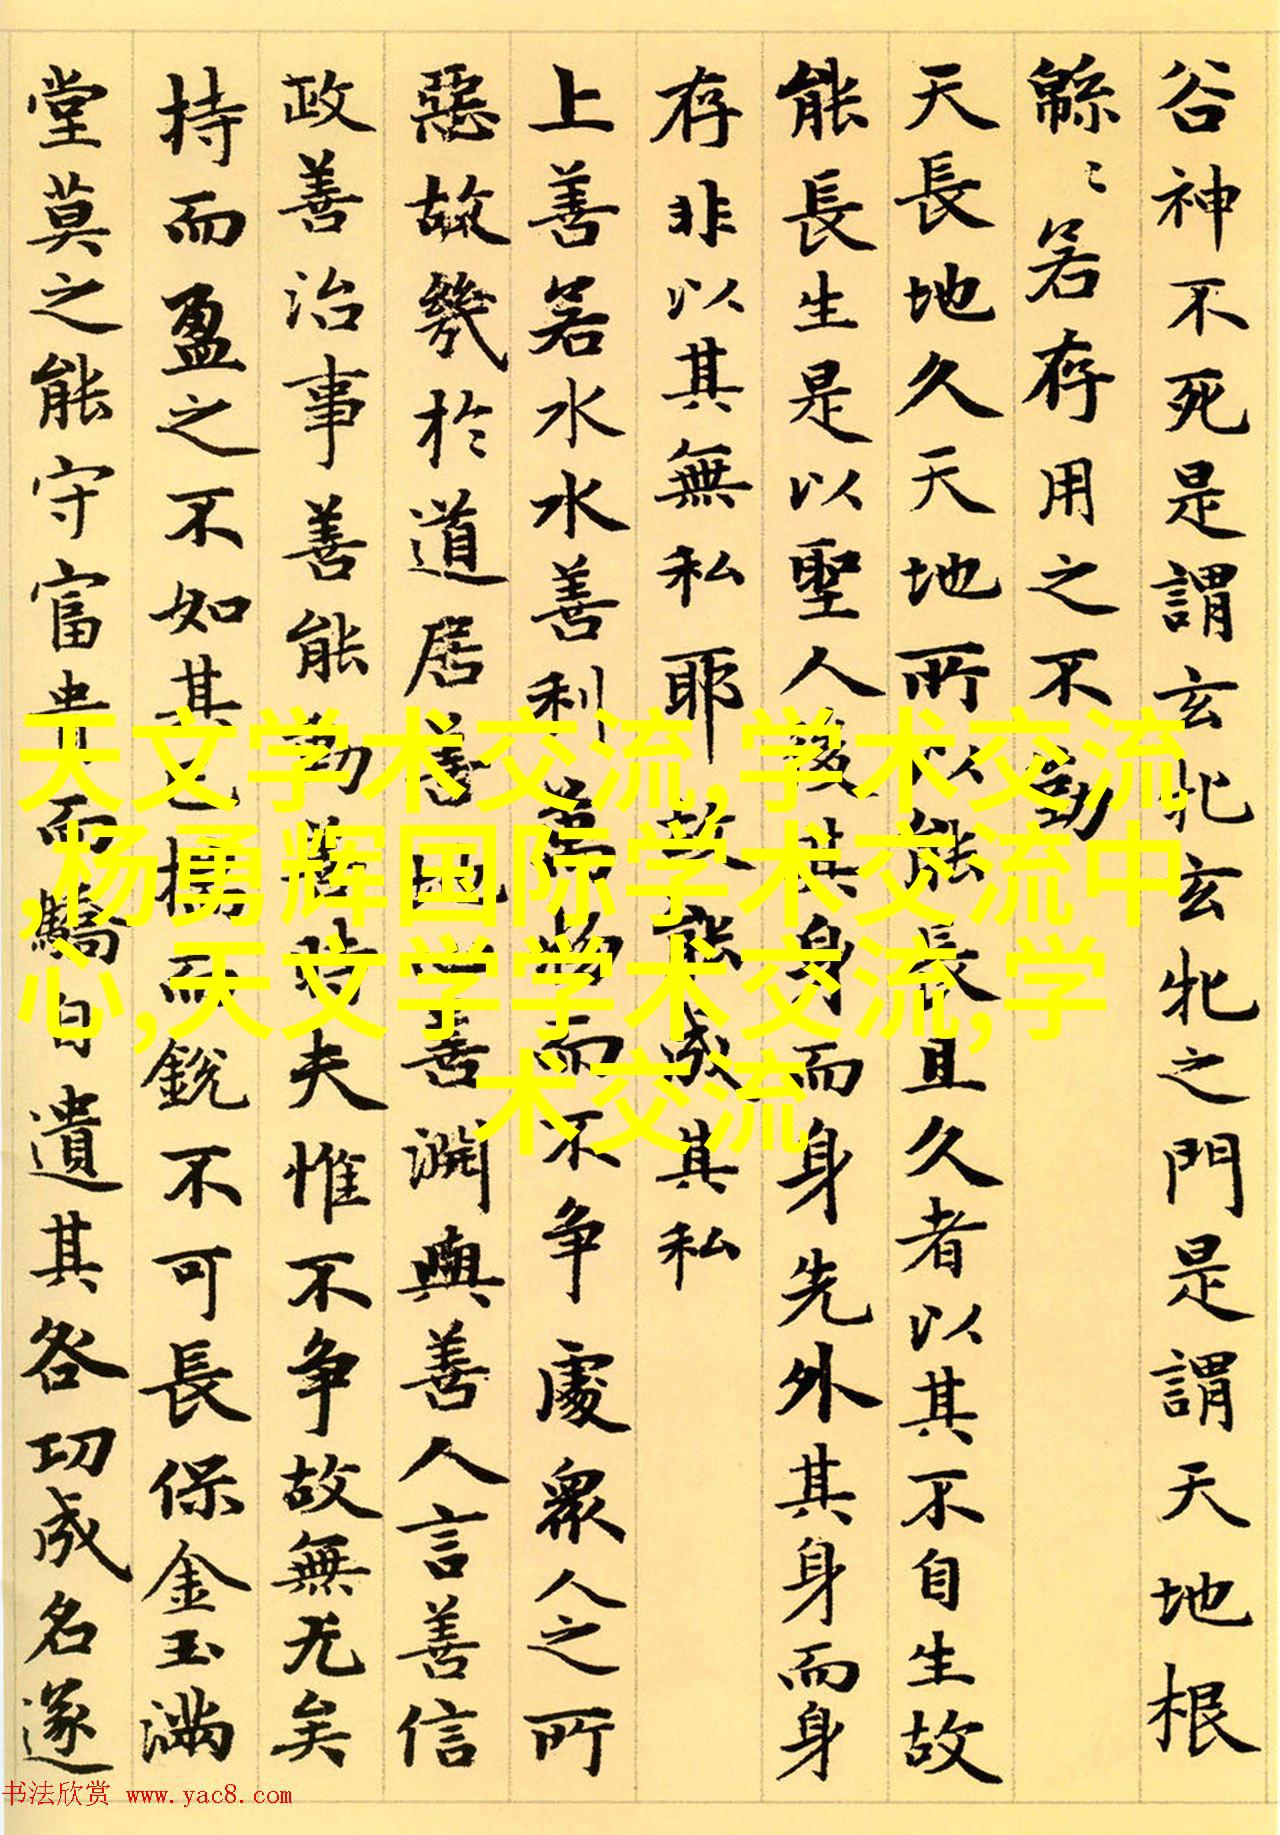 谷神不死是謂玄牝玄牝之門是謂天地根
緜〻若存用之不勤
天長地久天地所以能長且久者以其不自生故
能長生是以聖人後其身而身先外其身而身
存非以其無私耶故能成其私
上善若水水善利萬物而不争處衆人之所
惡故幾於道居善地心善淵與善人言善信
政善治事善能動善時夫惟不争故無尤矣
持而盈之不如其已揣而銳不可長保金玉滿
堂莫之能守富貴而驕自遺其咎功成名遂
天文学术交流,学术交流
,杨勇辉国际学术交流中
心,天文学学术交流,学
术交流
书法欣赏 www.yac8.com